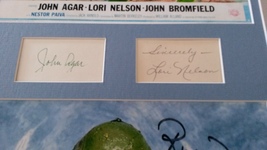 JOHN AGAR·LORI NELSON·JOHN BROMFIELD
NESTOR PAIVA
John Agar
Sincerely —
Lori Nelson